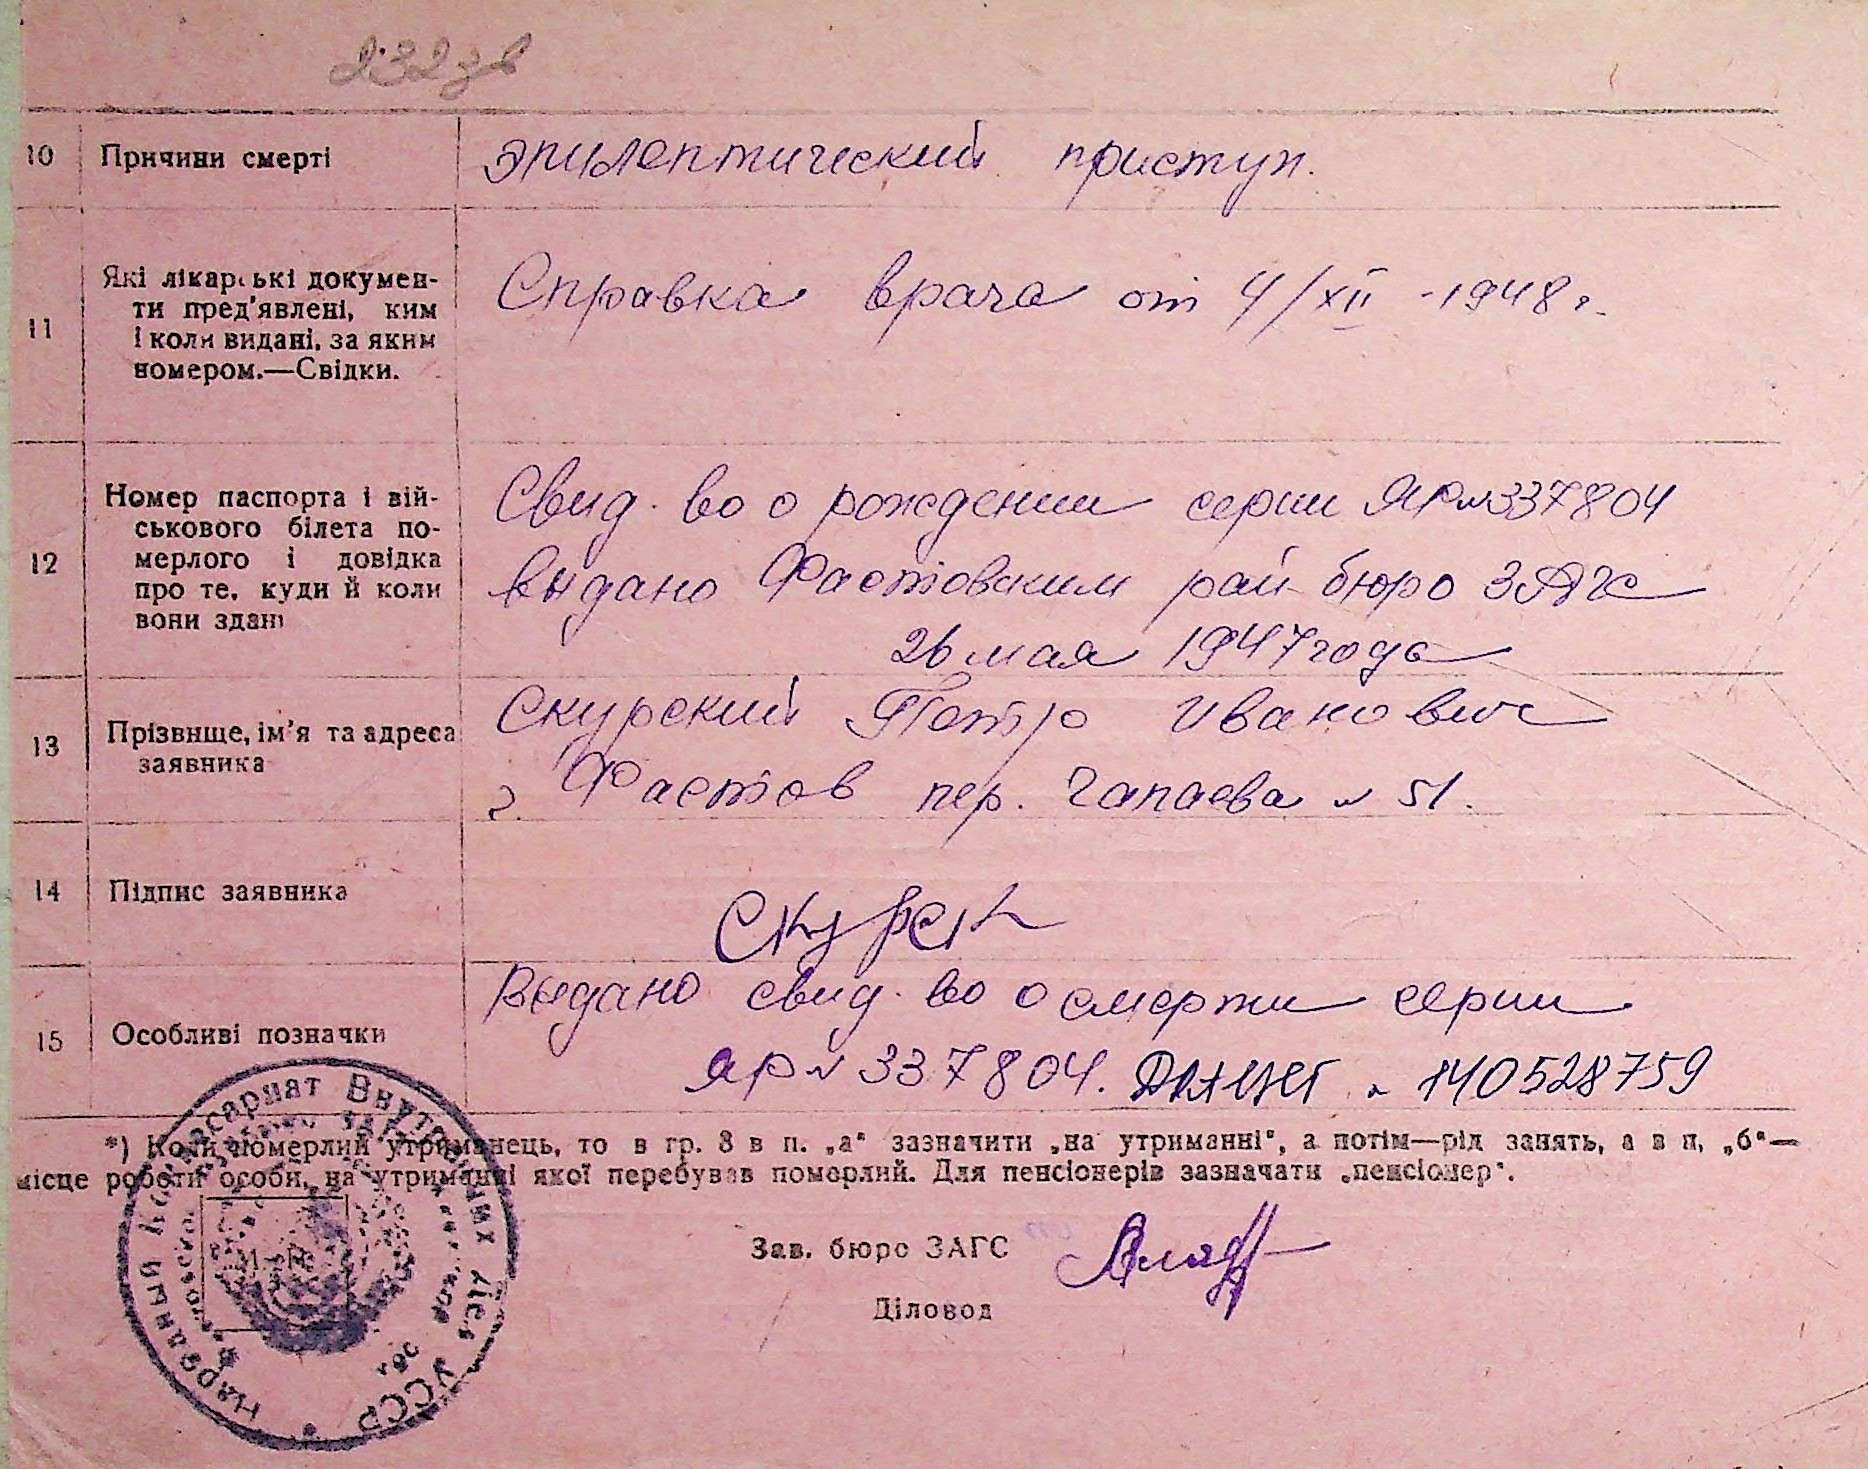 232зв
10 Причини смерті эпилептический приступ.
11 Які лікарські докумен-
ти пред'явлені, ким
і коли видані, за яким
номером.—Свідки.
Справка врача от 4/XII -1948 г.
12 Номер паспорта і вій-
ськового білета по-
мерлого і довідка
про те, куди й коли
вони здані
Свид. во о рождении серии ЯР № 337804
выдано Фастовским рай бюро ЗАГС
26 мая 1947 года
13 Прізвище, ім'я та адреса
заявника
Скурский Петр Иванович
г. Фастов пер. Чапаева № 51.
14 Підпис заявника
Скурск
15 Особливі позначки
Выдано свид. во о смерти серии
ЯР № 337804. № 140528759
*) Коли померлий утриманець, то в гр. 8 в п. „а“ зазначити „на утриманні“, а потім—рід занять, а в п, „б“—
місце роботи особи, на утриманні якої перебував померлий. Для пенсіонерів зазначати „пенсіонер“.
Зав. бюро ЗАГС
Діловод
Народный Комиссариат Внутренних Дел УССР